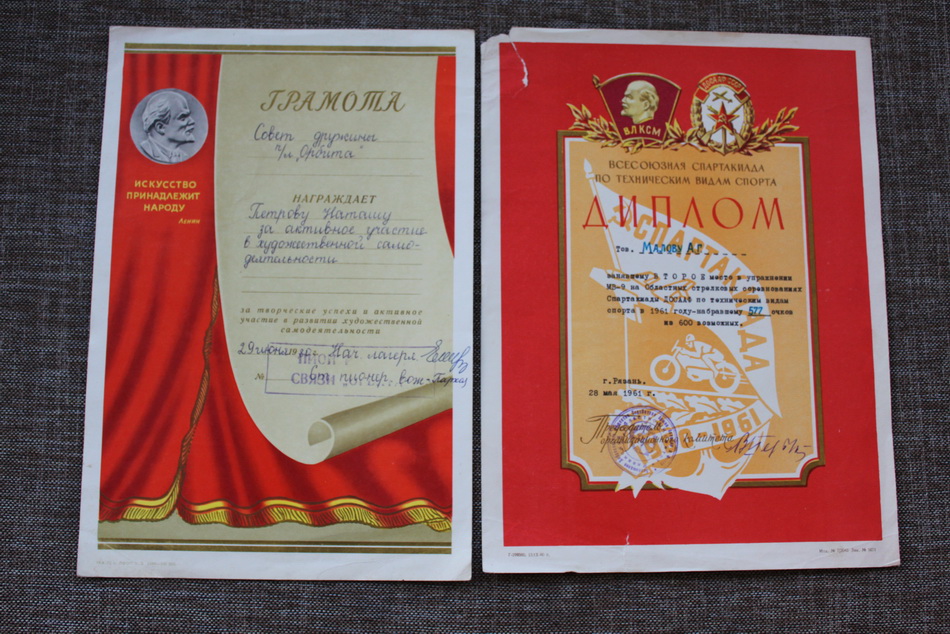 ИСКУССТВО
ПРИНАДЛЕЖИТ
НАРОДУ
Ленин
ГРАМОТА
Совет дружины
п/л „Орбита"
НАГРАЖДАЕТ
Петрову Наташу
за активное участие
в художественной само-
деятельности
за творческие успехи и активное
участие в развитии художественной
самодеятельности
29 июня 19 г. Нач. лагеря
№ Ст. пионер. вож-
СВЯЗИ
ВЛКСМ
ДОСААФ СССР
ВСЕСОЮЗНАЯ СПАРТАКИАДА
ПО ТЕХНИЧЕСКИМ ВИДАМ СПОРТА
ДИПЛОМ
Тов. МАЛОВУ А.Г.
занявшему ВТОРОЕ место в упражнении
МВ-9 на Областных стрелковых соревнованиях
Спартакиады ДОСААФ по техническим видам
спорта в 1961 году-набравшему 577 очков
из 600 возможных.
СПАРТАКИАДА
г. Рязань.
28 мая 1961 г.
Председатель
организационного комитета
1960-1961